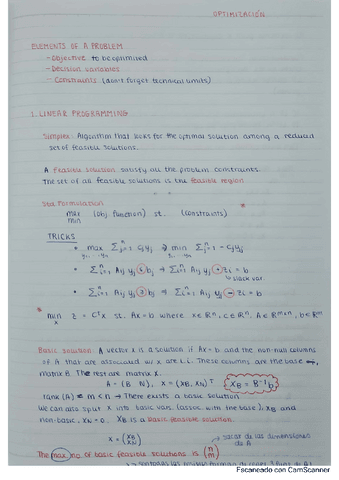 OPTIMIZACIÓN
ELEMENTS OF A PROBLEM
— Objective to be optimized
— Decision variables
— Constraints (don't forget technical limits)
1. LINEAR PROGRAMMING
Simplex: Algorithm that looks for the optimal solution among a reduced
set of feasible solutions.
A feasible solution satisfy all the problem constraints.
The set of all feasible solutions is the feasible region.
Std. Formulation
max min (obj. function) st. (constraints)
TRICKS
• max y₁,…yₙ Σⱼ₌₁ⁿ Cⱼyⱼ ⇒ min y₁…yₙ Σⱼ₌₁ⁿ −Cⱼyⱼ
• Σⱼ₌₁ⁿ Aᵢⱼ yⱼ ≤ bⱼ ⇒ Σⱼ₌₁ⁿ Aᵢⱼ yⱼ + zᵢ = b
slack var.
• Σⱼ₌₁ⁿ Aᵢⱼ yⱼ ≥ bⱼ ⇒ Σⱼ₌₁ⁿ Aᵢⱼ yⱼ − zᵢ = b
* min x z = Cᵀx st. Ax=b where x∈ℝⁿ, c∈ℝⁿ, A∈ℝᵐˣⁿ, b∈ℝᵐ
Basic solution: A vector x is a solution if Ax=b and the non-null columns
of A that are associated w/ x are l.i. These columns are the base →
matrix B. The rest are matrix N.
A = (B N), x = (xB, xN)ᵀ xB = B⁻¹b
rank(A) = m < n → There exists a basic solution
We can also split x into basic vars (assoc. with the base), xB and
non-basic, xN = 0. xB is a basic feasible solution.
x = (xB xN)
salor de las dimensiones
de A
The max no. of basic feasible solutions is (n m)
Escaneado con CamScanner